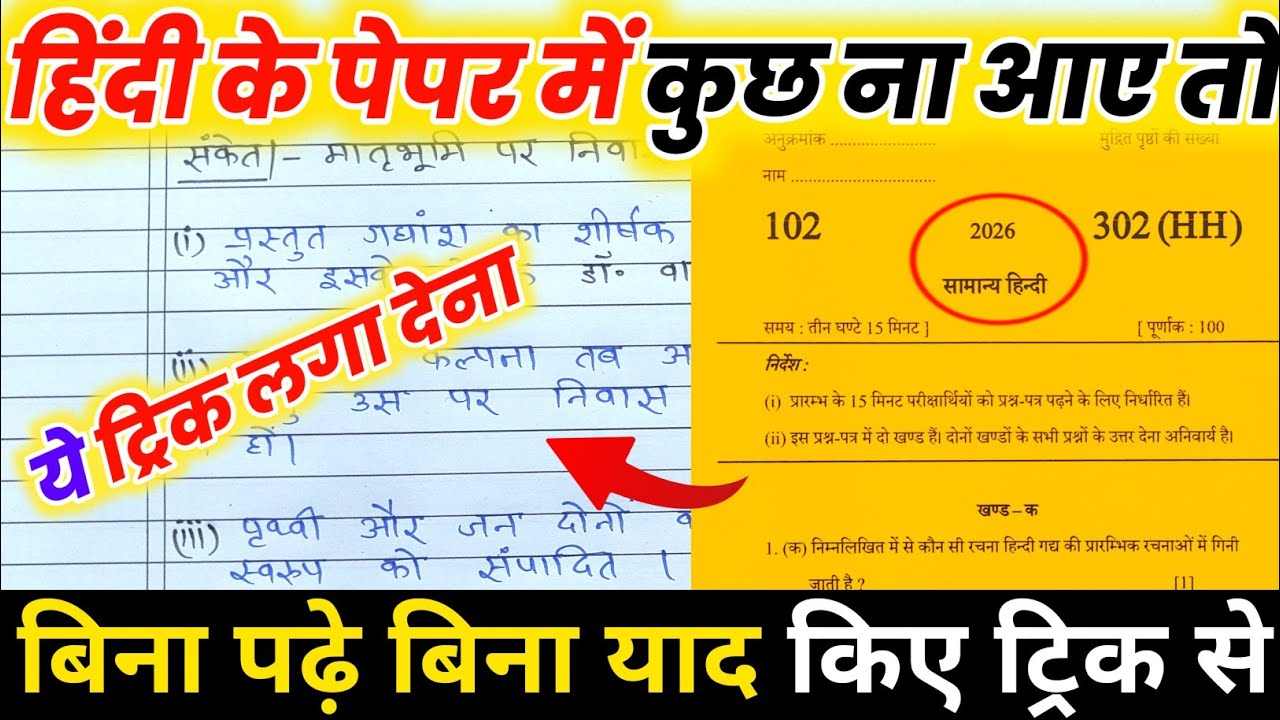 हिंदी के पेपर में कुछ ना आए तो
संकेत।- मातृभूमि पर निवा
(i) प्रस्तुत गद्यांश का शीर्षक
और इसके डॉ. वा
(ii) कल्पना तब अ
उस पर निवास
हों।
(iii) पृथ्वी और जन दोनों
स्वरुप को संपादित ।
ये ट्रिक लगा देना
अनुक्रमांक ........................
मुद्रित पृष्ठों की संख्या
नाम .................................
102
2026
302 (HH)
सामान्य हिन्दी
समय : तीन घण्टे 15 मिनट ]
[ पूर्णांक : 100
निर्देश :
(i) प्रारम्भ के 15 मिनट परीक्षार्थियों को प्रश्न-पत्र पढ़ने के लिए निर्धारित हैं।
(ii) इस प्रश्न-पत्र में दो खण्ड हैं। दोनों खण्डों के सभी प्रश्नों के उत्तर देना अनिवार्य है।
खण्ड – क
1. (क) निम्नलिखित में से कौन सी रचना हिन्दी गद्य की प्रारम्भिक रचनाओं में गिनी
जाती है ? [1]
बिना पढ़े बिना याद किए ट्रिक से